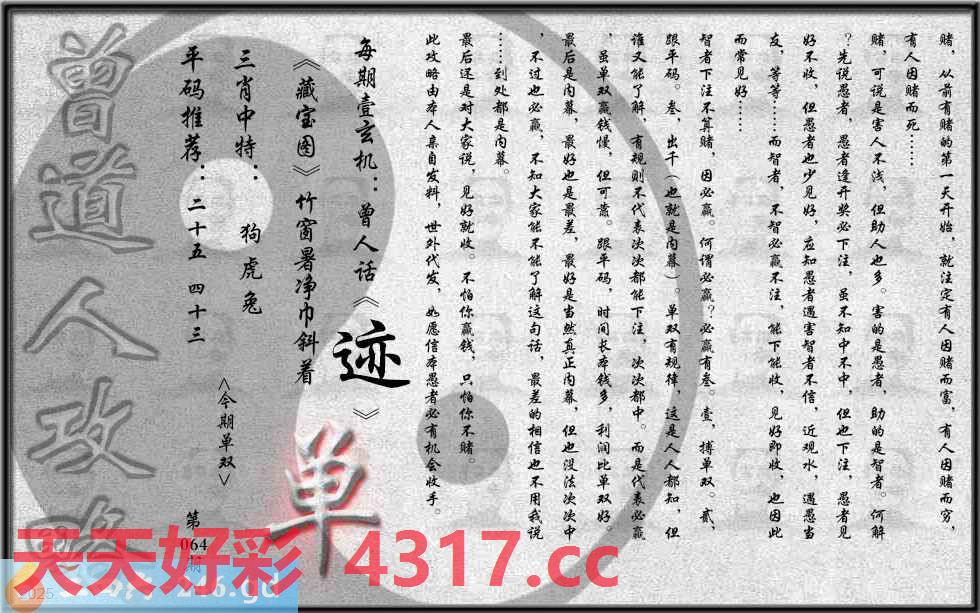 赌，从前有赌的第一天开始，就注定有人因赌而富，有人因赌而穷，
有人因赌而死……
赌，可说是害人不浅，但助人也多。害的是愚者，助的是智者。何解
？先说愚者，愚者逢开奖必下注，虽不知中不中，但也下注，愚者见
好不收，但愚者也少见好，应知愚者遇害智者不信，近观水，遇愚当
友，等等……而智者，不智必赢不注，能下能收，见好即收，也因此
而常见好……
智者下注不算赌，因必赢。何谓必赢？必赢有叁。壹，搏单双。贰，
跟平码。叁，出千（也就是内幕）。单双有规律，这是人人都知，但
谁又能了解，有规则不代表次次都能下注，次次都中。而是代表必赢
，虽单双赢钱慢，但可靠。跟平码，时间长本钱多，利润比单双好。
最后是内幕，最好也是最差，最好是当然真正内幕，但也没法次次中
，不过也必赢，不知大家能不能了解这句话，最差的相信也不用我说
……到处都是内幕。
最后还是对大家说，见好就收。不怕你赢钱，只怕你不赌。
此攻略由本人亲自发料，世外代发，如愿信本愚者必有机会收手。
每期壹玄机：曾人话《迹》
《藏宝图》竹窗暑净巾斜着
三肖中特：狗虎兔
平码推荐：二十五 四十三
<今期单双>
单
第
064
期
曾道人攻略
天天好彩 4317.cc
2025